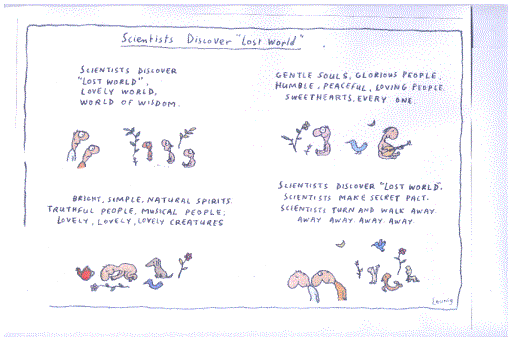 Scientists Discover "Lost World".
SCIENTISTS DISCOVER
"LOST WORLD",
LOVELY WORLD,
WORLD OF WISDOM.
GENTLE SOULS, GLORIOUS PEOPLE,
HUMBLE, PEACEFUL, LOVING PEOPLE.
SWEETHEARTS, EVERY ONE.
BRIGHT, SIMPLE, NATURAL SPIRITS.
TRUTHFUL PEOPLE, MUSICAL PEOPLE;
LOVELY, LOVELY, LOVELY CREATURES
SCIENTISTS DISCOVER "LOST WORLD".
SCIENTISTS MAKE SECRET PACT.
SCIENTISTS TURN AND WALK AWAY.
AWAY AWAY AWAY AWAY
Leunig